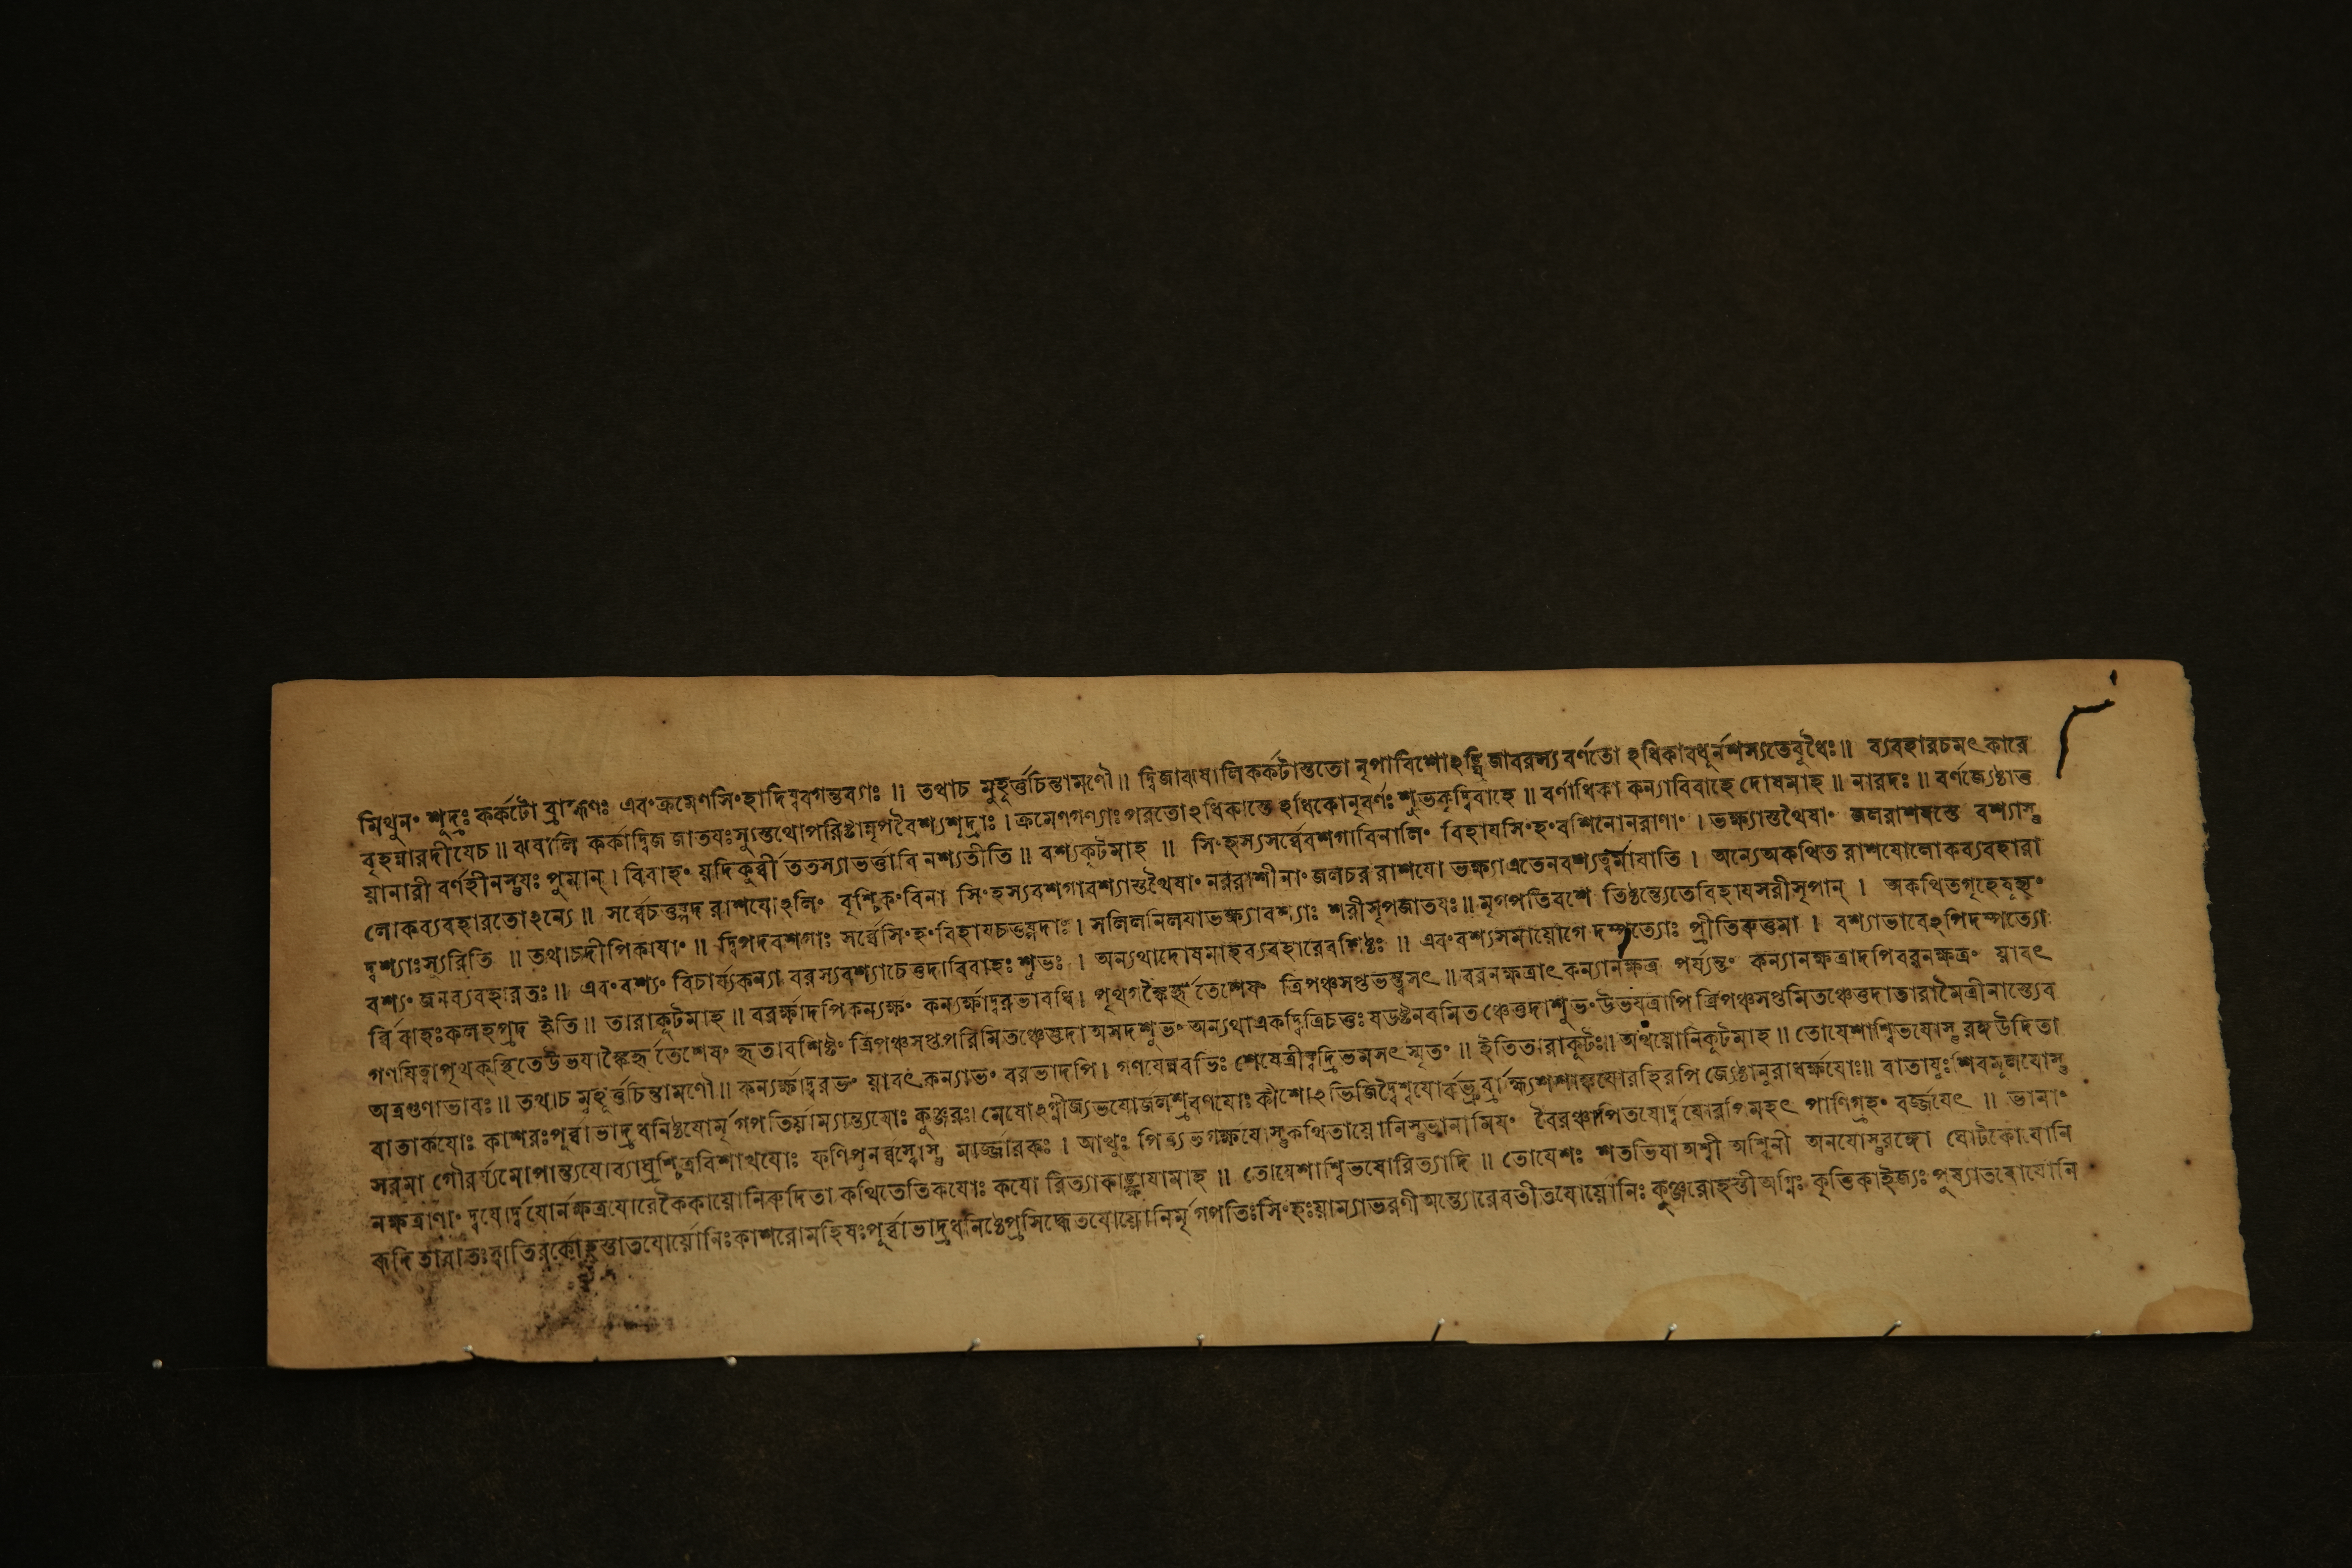 মিথুনং শূদ্রঃ কর্কটো ব্রাহ্মণঃ এবংক্রমেণসিংহাদিষ্ববগন্তব্যঃ ॥ তথাচ মুহূর্ত্তচিন্তামণৌ ॥ দ্বিজাঝষালিকর্কটাস্ততো নৃপাবিশোঽঙ্ঘ্রিজাবরস্য বর্ণতো ঽধিকাবধূর্নশস্যতেবুধৈঃ ॥ ব্যবহারচমৎকারে
বৃহন্নারদীযেচ ॥ ঝষালি কর্কাদ্বিজ জাতযঃস্যুস্তথোপরিষ্টান্নৃপবৈশ্যশূদ্রাঃ । ক্রমেণগণ্যাঃপরতোঽধিকাস্তে ঽধিকোনৃবর্ণঃ শুভকৃদ্বিবাহে ॥ বর্ণাধিকা কন্যাবিবাহে দোষমাহ ॥ নারদঃ ॥ বর্ণজ্যেষ্ঠাত্ত
য়ানারী বর্ণহীনস্তুযঃ পুমান্ । বিবাহং য়দিকুর্ব্বীততস্যাভর্ত্তাবিনশ্যতীতি ॥ বশ্যকূটমাহ ॥ সিংহস্যসর্ব্বেবশগাবিনালিং বিহাযসিংহংবশিনোনরাণাং । ভক্ষ্যাস্তথৈষাং জলরাশযস্তে বশ্যাস্তু
লোকব্যবহারতোঽন্যে ॥ সর্ব্বেচতুষ্পদ রাশযোঽলিং বৃশ্চিকংবিনা সিংহস্যবশগাবশ্যাস্তথৈষাং নররাশীনাং জলচর রাশযো ভক্ষ্যাএতেনবশ্যত্বমাযাতি । অন্যেঅকথিত রাশযোলোকব্যবহারা
দ্বশ্যাঃস্যুরিতি ॥ তথাচদীপিকাযাং ॥ দ্বিপদবশগাঃ সর্ব্বেসিংহংবিহাযচতুষ্পদাঃ । সলিলনিলযাভক্ষ্যাবশ্যাঃ শরীসৃপজাতযঃ ॥ মৃগপতিবশে তিষ্ঠন্ত্যেতেবিহাযসরীসৃপান্ । অকথিতগৃহেষূহ্যং
বশ্যং জনব্যবহারতঃ ॥ এবংবশ্যং বিচার্য্যকন্যা বরস্যবশ্যাচেত্তদাবিবাহঃ শুভঃ । অন্যথাদোষমাহব্যবহারেবশিষ্ঠঃ ॥ এবংবশ্যসমাযোগে দম্পত্যোঃ প্রীতিরুত্তমা । বশ্যাভাবেঽপিদম্পত্যো
র্বিবাহঃকলহপ্রদ ইতি ॥ তারাকূটমাহ ॥ বরর্ক্ষাদপিকন্যর্ক্ষং কন্যর্ক্ষাদ্বরভাবধি । পৃথগঙ্কৈর্হৃতেশেষং ত্রিপঞ্চসপ্তভন্ত্বসৎ ॥ বরনক্ষত্রাৎ কন্যানক্ষত্র পর্য্যন্তং কন্যানক্ষত্রাদপিবরনক্ষত্রং য়াবৎ
গণযিত্বাপৃথক্স্থিতেউভযাঙ্কৈর্হৃতেশেষং হৃতাবশিষ্টং ত্রিপঞ্চসপ্তপরিমিতঞ্চেত্তদা অসদশুভং অন্যথাএকদ্বিত্রিচতুঃ ষডষ্টনবমিতঞ্চেত্তদাশুভংউভযত্রাপি ত্রিপঞ্চসপ্তমিতঞ্চেত্তদাতারামৈত্রীনাস্ত্যেব
অত্রগুণাভাবঃ ॥ তথাচ মুহূর্ত্তচিন্তামণৌ ॥ কন্যর্ক্ষাদ্বরভং য়াবৎকন্যাভং বরভাদপি । গণযেন্নবভিঃ শেষেত্রীষ্বদ্রিভমসৎ স্মৃতং ॥ ইতিতারাকূটঃ ॥ অথয়োনিকূটমাহ ॥ তোযেশাশ্বিভযোস্তু রঙ্গউদিতা
বাতার্কযোঃ কাশরঃপূর্ব্বাভাদ্রধনিষ্ঠযোর্মৃগপতির্য়াম্যান্ত্যযোঃ কুঞ্জরঃ। মেষোঽগ্নীজ্যভযোর্জলশ্রবণযোঃ কীশোঽভিজিদ্বৈশ্বযোর্বভ্রুর্ব্রাহ্ম্যশশাঙ্কযোরহিরপি জ্যেষ্ঠানুরাধর্ক্ষযোঃ ॥ বাতাযুঃশিবমূলযোস্তু
সরমা গৌরর্য্যমোপান্ত্যযোর্ব্যাঘ্রশ্চিত্রবিশাখযোঃ ফণিপুনর্ব্বস্বোস্তু মার্জ্জারকঃ । আখুঃ পিত্র্যভগর্ক্ষযোস্তুকথিতায়োনিস্তুভানামিযং বৈরঞ্চাপিতযোর্দ্বযোরপিমহৎ পাণিগ্রহং বর্জ্জযেৎ ॥ ভানাং
নক্ষত্রাণাং দ্বযোর্দ্বযোর্নক্ষত্রযোরেকৈকায়োনিরুদিতা কথিতেতিকযোঃ কযো রিত্যাকাঙ্ক্ষাযামাহ ॥ তোযেশাশ্বিভযোরিত্যাদি ॥ তোযেশঃ শতভিষাঅশ্বী অশ্বিনী অনযোস্তুরঙ্গো ঘোটকোযোনি
রুদিতাবাতঃস্বাতিরর্কোহস্তাতযোর্য়োনিঃকাশরোমহিষঃপূর্ব্বাভাদ্রধনিষ্ঠেপ্রসিদ্ধেতযোর্য়োনির্মৃগপতিঃসিংহঃয়াম্যাভরণীঅন্ত্যোরেবতীতযোর্য়োনিঃ কুঞ্জরোহস্তীঅগ্নিঃ কৃত্তিকাইজ্যঃ পুষ্যাতযোর্যোনি